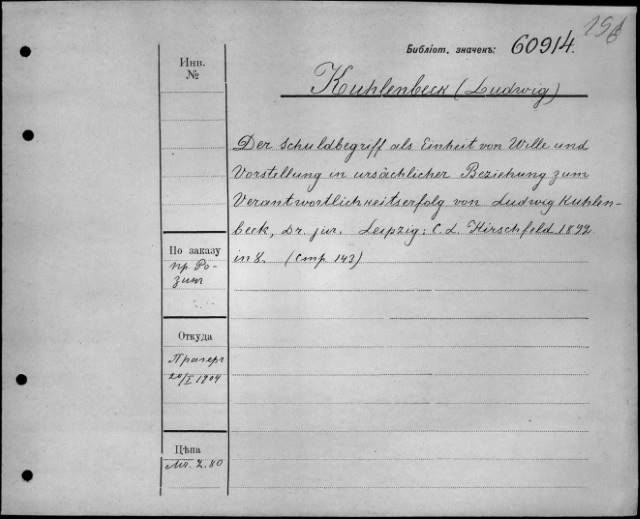 156
Библіот. значекъ: 60914.
Инв.
№
Kuhlenbeck (Ludwig)
Der Schuldbegriff als Einheit von Wille und
Vorstellung in ursächlicher Beziehung zum
Verantwortlichkeitserfolg von Ludwig Kuhlen-
beck, Dr. jur. Leipzig: C. L. Hirschfeld 1892
in 8. (стр. 143)
По заказу
пр Ро-
зинъ
Откуда
Прагеръ
20/I 1904
Цѣна
Мr. 2.80